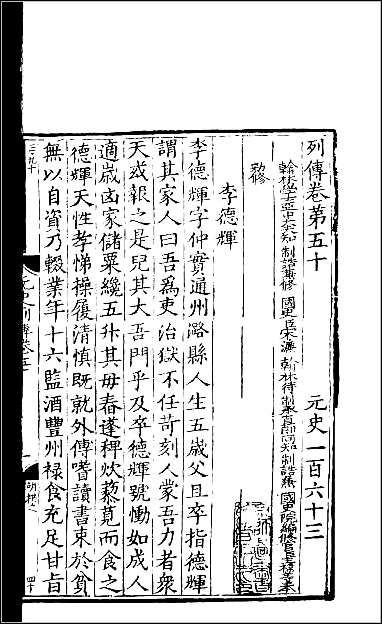 列傳卷第五十 元史一百六十三
翰林學士亞中大夫知制誥兼修國史臣宋濂 翰林待制承直郎同知制誥兼國史院編修官臣王褘等奉
勑修
李德輝
李德輝字仲實通州潞縣人生五歲父且卒指德輝
謂其家人曰吾爲吏治獄不任苛刻人蒙吾力者衆
天或報之是兒其大吾門乎及卒德輝號慟如成人
適歲凶家儲粟纔五升其母舂蓬稗炊藜莧而食之
德輝天性孝悌操履清慎既就外傅嗜讀書束於貧
無以自資乃輟業年十六監酒豐州祿食充足甘旨